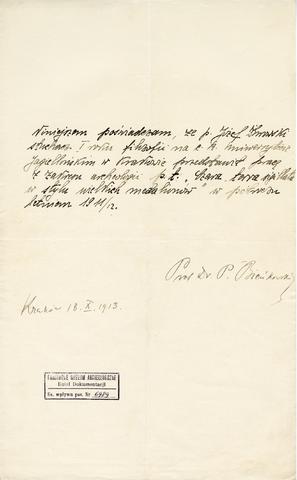 Niniejszem poświadczam, że p. Józef Żurowski
słuchacz I roku filozofii na c. k. uniwersytecie
Jagiellońskim w Krakowie przedstawił pracę
z zakresu archeologii p. t. „Czara terra sigillata
w stylu wielkich medalionów" w półroczu
letniem 1911/12.
Prof. Dr. P. Bieńkowski
Kraków 18. X. 1913.
PAŃSTWOWE MUZEUM ARCHEOLOGICZNE
Dział Dokumentacji
Ks. wpływu poz. Nr